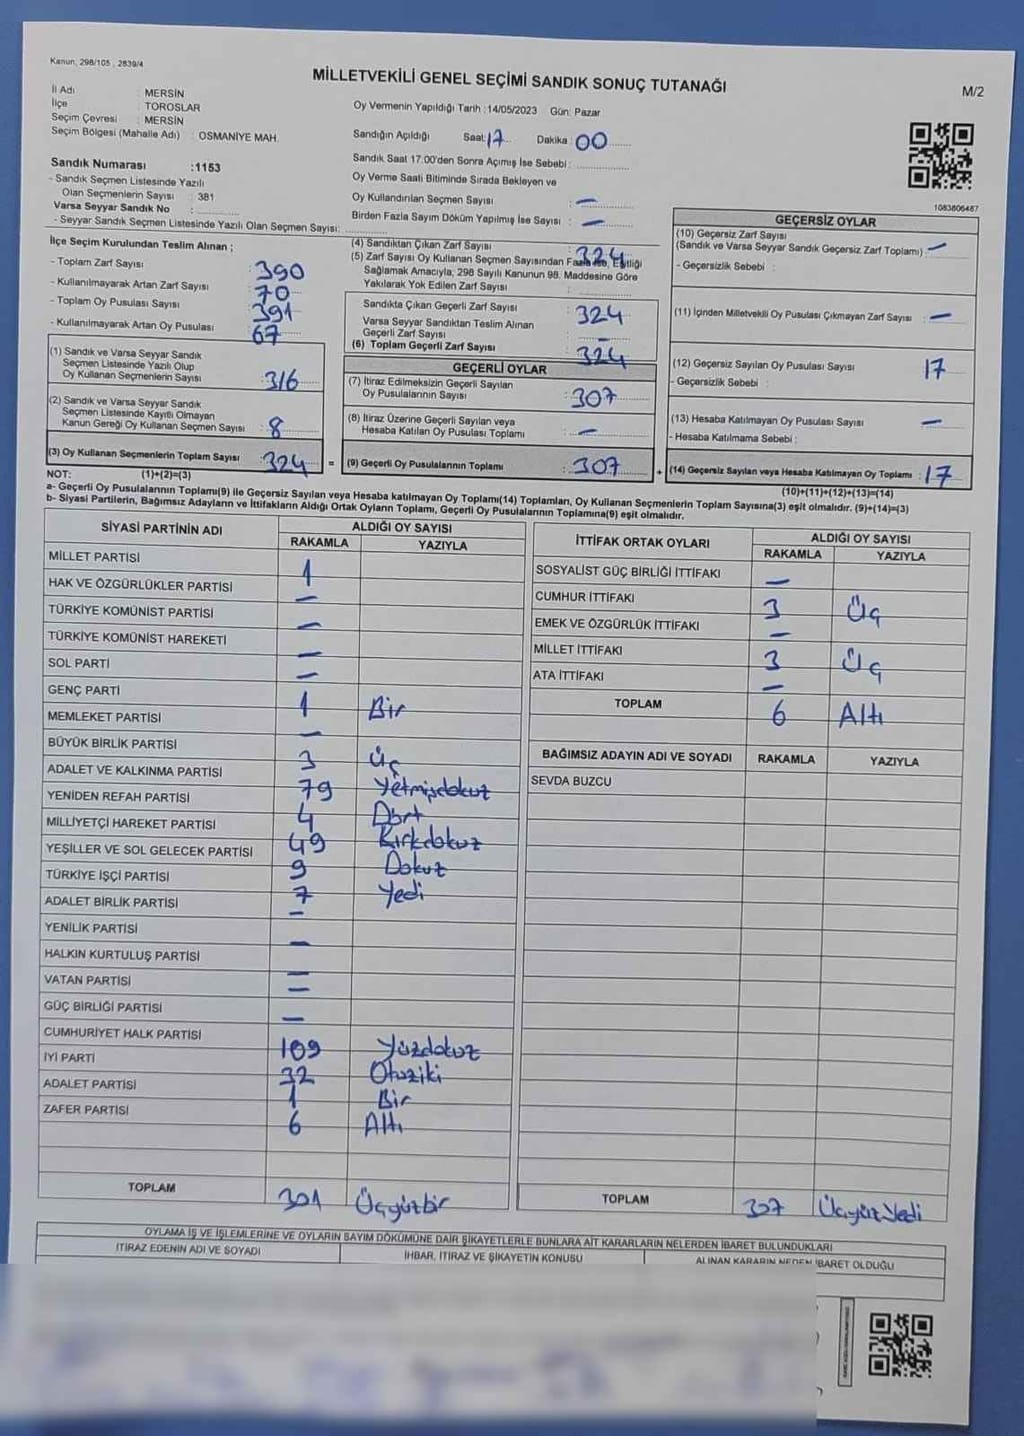 Kanun, 298/105 , 2839/4
MİLLETVEKİLİ GENEL SEÇİMİ SANDIK SONUÇ TUTANAĞI
M/2
İl Adı : MERSİN
İlçe : TOROSLAR
Seçim Çevresi : MERSİN
Seçim Bölgesi (Mahalle Adı) : OSMANİYE MAH.
Oy Vermenin Yapıldığı Tarih :14/05/2023 Gün: Pazar
Sandığın Açıldığı Saat:17 Dakika:00
Sandık Saat 17:00'den Sonra Açılmış İse Sebebi :
Oy Verme Saati Bitiminde Sırada Bekleyen ve
Oy Kullandırılan Seçmen Sayısı : —
Birden Fazla Sayım Döküm Yapılmış İse Sayısı : —
Sandık Numarası :1153
- Sandık Seçmen Listesinde Yazılı
Olan Seçmenlerin Sayısı : 381
Varsa Seyyar Sandık No :
- Seyyar Sandık Seçmen Listesinde Yazılı Olan Seçmen Sayısı:
1083806487
İlçe Seçim Kurulundan Teslim Alınan ;
- Toplam Zarf Sayısı : 390
- Kullanılmayarak Artan Zarf Sayısı : 70
- Toplam Oy Pusulası Sayısı : 391
- Kullanılmayarak Artan Oy Pusulası : 67
(1) Sandık ve Varsa Seyyar Sandık
Seçmen Listesinde Yazılı Olup
Oy Kullanan Seçmenlerin Sayısı :316
(2) Sandık ve Varsa Seyyar Sandık
Seçmen Listesinde Kayıtlı Olmayan
Kanun Gereği Oy Kullanan Seçmen Sayısı : 8
(3) Oy Kullanan Seçmenlerin Toplam Sayısı :324 =
(4) Sandıktan Çıkan Zarf Sayısı : 324
(5) Zarf Sayısı Oy Kullanan Seçmen Sayısından Fazla ise, Eşitliği
Sağlamak Amacıyla, 298 Sayılı Kanunun 98. Maddesine Göre
Yakılarak Yok Edilen Zarf Sayısı :
Sandıkta Çıkan Geçerli Zarf Sayısı : 324
Varsa Seyyar Sandıktan Teslim Alınan
Geçerli Zarf Sayısı : —
(6) Toplam Geçerli Zarf Sayısı : 324
GEÇERLİ OYLAR
(7) İtiraz Edilmeksizin Geçerli Sayılan
Oy Pusulalarının Sayısı : 307
(8) İtiraz Üzerine Geçerli Sayılan veya
Hesaba Katılan Oy Pusulası Toplamı : —
(9) Geçerli Oy Pusulalarının Toplamı : 307 +
GEÇERSİZ OYLAR
(10) Geçersiz Zarf Sayısı
(Sandık ve Varsa Seyyar Sandık Geçersiz Zarf Toplamı) : —
- Geçersizlik Sebebi :
(11) İçinden Milletvekili Oy Pusulası Çıkmayan Zarf Sayısı : —
(12) Geçersiz Sayılan Oy Pusulası Sayısı : 17
- Geçersizlik Sebebi :
(13) Hesaba Katılmayan Oy Pusulası Sayısı : —
- Hesaba Katılmama Sebebi :
(14) Geçersiz Sayılan veya Hesaba Katılmayan Oy Toplamı :17
NOT: (1)+(2)=(3)
(10)+(11)+(12)+(13)=(14)
a- Geçerli Oy Pusulalarının Toplamı(9) ile Geçersiz Sayılan veya Hesaba katılmayan Oy Toplamı(14) Toplamları, Oy Kullanan Seçmenlerin Toplam Sayısına(3) eşit olmalıdır. (9)+(14)=(3)
b- Siyasi Partilerin, Bağımsız Adayların ve İttifakların Aldığı Ortak Oyların Toplamı, Geçerli Oy Pusulalarının Toplamına(9) eşit olmalıdır.
SİYASİ PARTİNİN ADI ALDIĞI OY SAYISI
RAKAMLA YAZIYLA
MİLLET PARTİSİ 1
HAK VE ÖZGÜRLÜKLER PARTİSİ —
TÜRKİYE KOMÜNİST PARTİSİ —
TÜRKİYE KOMÜNİST HAREKETİ —
SOL PARTİ —
GENÇ PARTİ 1 Bir
MEMLEKET PARTİSİ —
BÜYÜK BİRLİK PARTİSİ 3 Üç
ADALET VE KALKINMA PARTİSİ 79 Yetmişdokuz
YENİDEN REFAH PARTİSİ 4 Dört
MİLLİYETÇİ HAREKET PARTİSİ 49 Kırkdokuz
YEŞİLLER VE SOL GELECEK PARTİSİ 9 Dokuz
TÜRKİYE İŞÇİ PARTİSİ 7 Yedi
ADALET BİRLİK PARTİSİ —
YENİLİK PARTİSİ —
HALKIN KURTULUŞ PARTİSİ —
VATAN PARTİSİ —
GÜÇ BİRLİĞİ PARTİSİ —
CUMHURİYET HALK PARTİSİ 109 Yüzdokuz
İYİ PARTİ 32 Otuziki
ADALET PARTİSİ 1 Bir
ZAFER PARTİSİ 6 Altı
TOPLAM 301 Üçyüzbir
İTTİFAK ORTAK OYLARI ALDIĞI OY SAYISI
RAKAMLA YAZIYLA
SOSYALİST GÜÇ BİRLİĞİ İTTİFAKI —
CUMHUR İTTİFAKI 3 Üç
EMEK VE ÖZGÜRLÜK İTTİFAKI —
MİLLET İTTİFAKI 3 Üç
ATA İTTİFAKI —
TOPLAM 6 Altı
BAĞIMSIZ ADAYIN ADI VE SOYADI RAKAMLA YAZIYLA
SEVDA BUZCU
TOPLAM 307 ÜçyüzYedi
OYLAMA İŞ VE İŞLEMLERİNE VE OYLARIN SAYIM DÖKÜMÜNE DAİR ŞİKAYETLERLE BUNLARA AİT KARARLARIN NELERDEN İBARET BULUNDUKLARI
İTİRAZ EDENİN ADI VE SOYADI İHBAR, İTİRAZ VE ŞİKAYETİN KONUSU ALINAN KARARIN NEDEN İBARET OLDUĞU